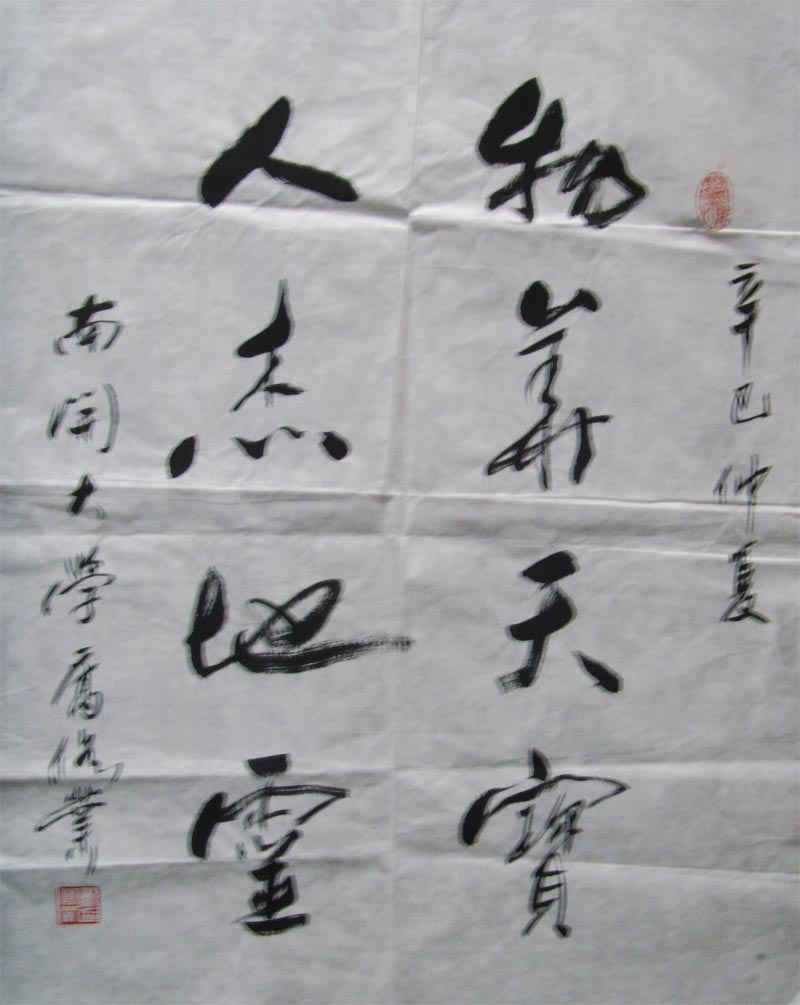 辛巳仲夏
物華天寶
人杰地靈
南開大學業